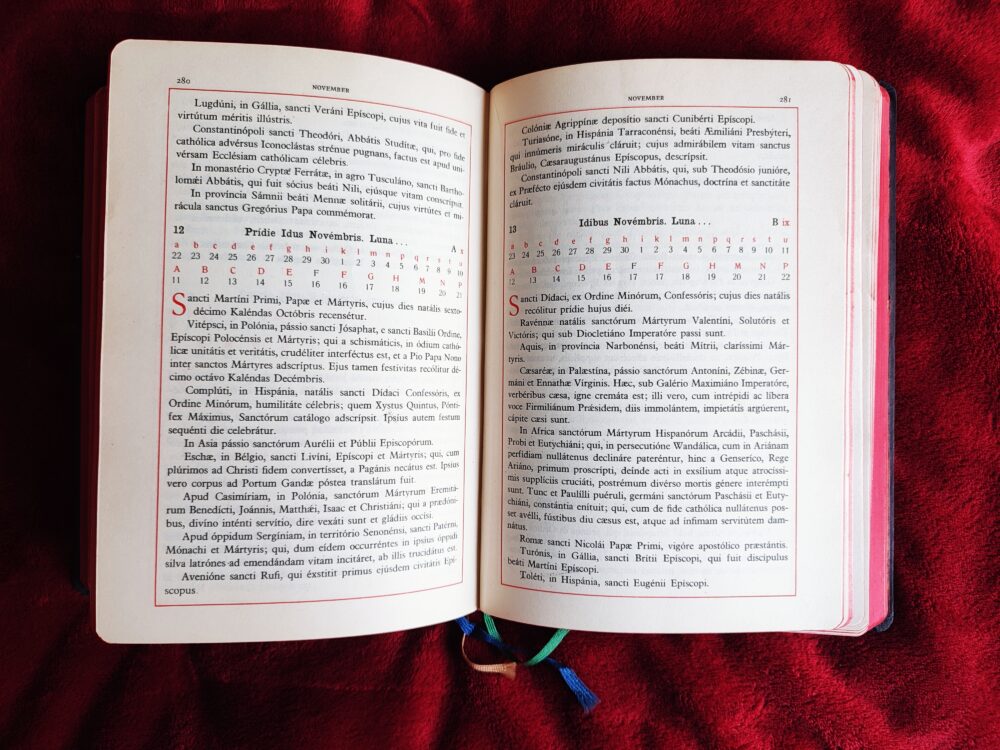 280
NOVEMBER
Lugdúni, in Gállia, sancti Veráni Epíscopi, cujus vita fuit fide et
virtútum méritis illústris.
Constantinópoli sancti Theodóri, Abbátis Studítæ, qui, pro fide
cathólica advérsus Iconoclástas strénue pugnans, factus est apud uni-
vérsam Ecclésiam cathólicam célebris.
In monastério Cryptæ Ferrátæ, in agro Tusculáno, sancti Bartho-
lomǽi Abbátis, qui fuit sócius beáti Nili, ejúsque vitam conscrípsit.
In província Sámnii beáti Mennæ solitárii, cujus virtútes et mi-
rácula sanctus Gregórius Papa commémorat.
12 Prídie Idus Novémbris. Luna . . . A x
a b c d e f g h i k l m n p q r s t u
22 23 24 25 26 27 28 29 30 1 2 3 4 5 6 7 8 9 10
A B C D E F F G H M N P
11 12 13 14 15 16 16 17 18 19 20 21
Sancti Martíni Primi, Papæ et Mártyris, cujus dies natális sexto-
décimo Kaléndas Octóbris recensétur.
Vitépsci, in Polónia, pássio sancti Jósaphat, e sancti Basilíi Ordine,
Epíscopi Polocénsis et Mártyris; qui a schismáticis, in ódium cathó-
licæ unitátis et veritátis, crudéliter interféctus est, et a Pio Papa Nono
inter sanctos Mártyres adscríptus. Ejus tamen festívitas recólitur dé-
cimo octávo Kaléndas Decémbris.
Complúti, in Hispánia, natális sancti Dídaci Confessóris, ex
Ordine Minórum, humilitáte célebris; quem Xystus Quintus, Pónti-
fex Máximus, Sanctórum catálogo adscrípsit. Ipsíus autem festum
sequénti die celebrátur.
In Asia pássio sanctórum Aurélii et Públii Episcopórum.
Eschæ, in Bélgio, sancti Livíni, Epíscopi et Mártyris; qui, cum
plúrimos ad Christi fidem convertísset, a Pagánis necátus est. Ipsíus
vero corpus ad Portum Gandæ póstea translátum fuit.
Apud Casimíriam, in Polónia, sanctórum Mártyrum Eremitá-
rum Benedícti, Joánnis, Matthǽi, Isaac et Christiáni; qui a prædóni-
bus, divíno inténti servítio, dire vexáti sunt et gládiis occísi.
Apud óppidum Sergíniam, in território Senonénsi, sancti Patérni,
Mónachi et Mártyris; qui, dum eídem occurréntes in ipsíus óppidi
silva latrónes ad emendándam vitam incitáret, ab illis trucidátus est.
Avenióne sancti Rufi, qui éxstitit primus ejúsdem civitátis Epí-
scopus
NOVEMBER
281
Colóniæ Agrippínæ deposítio sancti Cunibérti Epíscopi.
Turiasóne, in Hispánia Tarraconénsi, beáti Æmiliáni Presbýteri,
qui innúmeris miráculis cláruit; cujus admirábilem vitam sanctus
Bráulio, Cæsaraugustánus Epíscopus, descrípsit.
Constantinópoli sancti Nili Abbátis, qui, sub Theodósio junióre,
ex Præfécto ejúsdem civitátis factus Mónachus, doctrína et sanctitáte
cláruit.
13 Idibus Novémbris. Luna . . . B ix
a b c d e f g h i k l m n p q r s t u
23 24 25 26 27 28 29 30 1 2 3 4 5 6 7 8 9 10 11
A B C D E F F G H M N P
12 13 14 15 16 17 17 18 19 20 21 22
Sancti Dídaci, ex Ordine Minórum, Confessóris; cujus dies natális
recólitur prídie hujus diéi.
Ravénnæ natális sanctórum Mártyrum Valentíni, Solutóris et
Victóris; qui sub Diocletiáno Imperatóre passi sunt.
Aquis, in província Narbonénsi, beáti Mítrii, claríssimi Már-
tyris.
Cæsaréæ, in Palæstína, pássio sanctórum Antoníni, Zébinæ, Ger-
máni et Ennathæ Vírginis. Hæc, sub Galério Maximiáno Imperatóre,
verbéribus cæsa, igne cremáta est; illi vero, cum intrépidi ac líbera
voce Firmiliánum Prǽsidem, diis immolántem, impietátis argúerent,
cápite cæsi sunt.
In Africa sanctórum Mártyrum Hispanórum Arcádii, Paschásii,
Probi et Eutychiáni; qui, in persecutióne Wandálica, cum in Ariánam
perfídiam nullátenus declináre pateréntur, hinc a Genseríco, Rege
Ariáno, primum proscrípti, deínde acti in exsílium atque atrocíssi-
mis supplíciis cruciáti, postrémum divérso mortis génere interémpti
sunt. Tunc et Paulílli puéruli, germáni sanctórum Paschásii et Euty-
chiáni, constántia enítuit; qui, cum de fide cathólica nullátenus pos-
set avélli, fústibus diu cæsus est, atque ad ínfimam servitútem dam-
nátus.
Romæ sancti Nicolái Papæ Primi, vigóre apostólico præstántis.
Turónis, in Gállia, sancti Brítii Epíscopi, qui fuit discípulus
beáti Martíni Epíscopi.
Toléti, in Hispánia, sancti Eugénii Epíscopi.